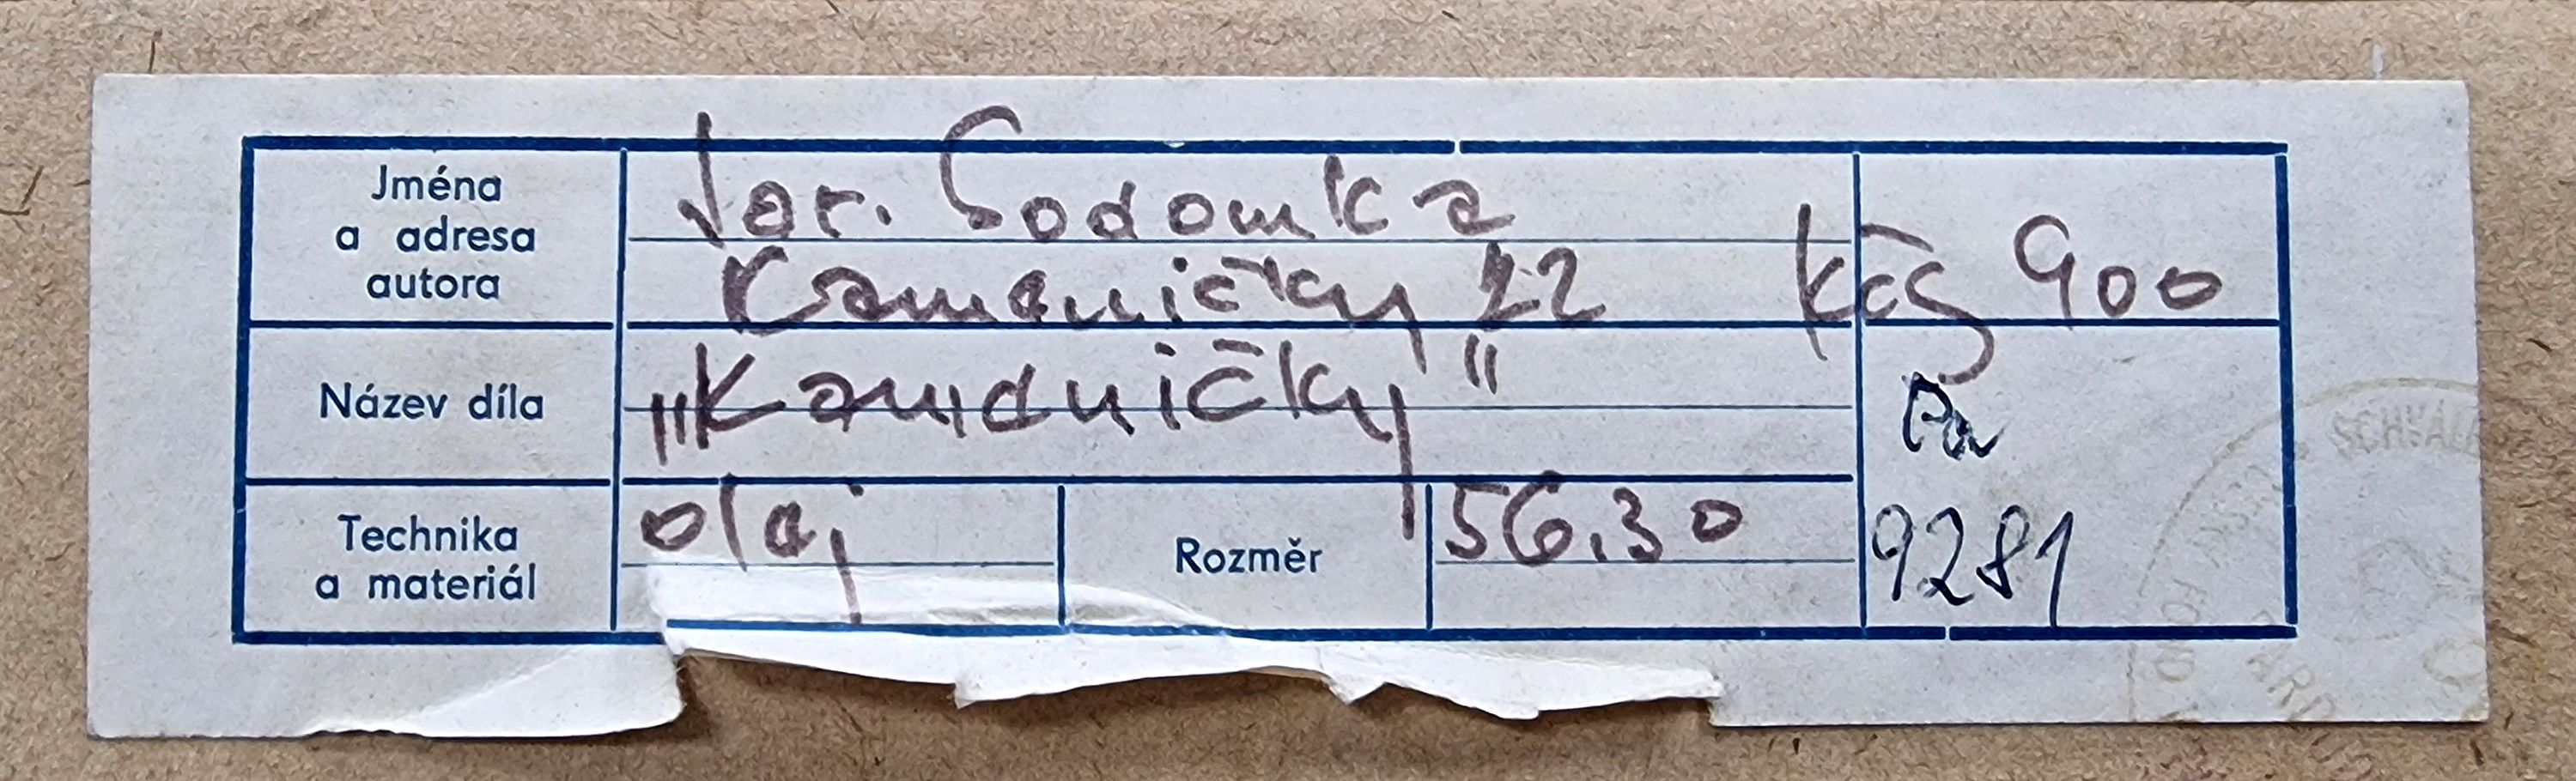 Jména
a adresa
autora
Jar. Sodomka
Kameničky 22
Kčs 900
Název díla
„Kameničky"
Pa
Technika
a materiál
olej
Rozměr
56.30
9281
SCHVÁL
FOND